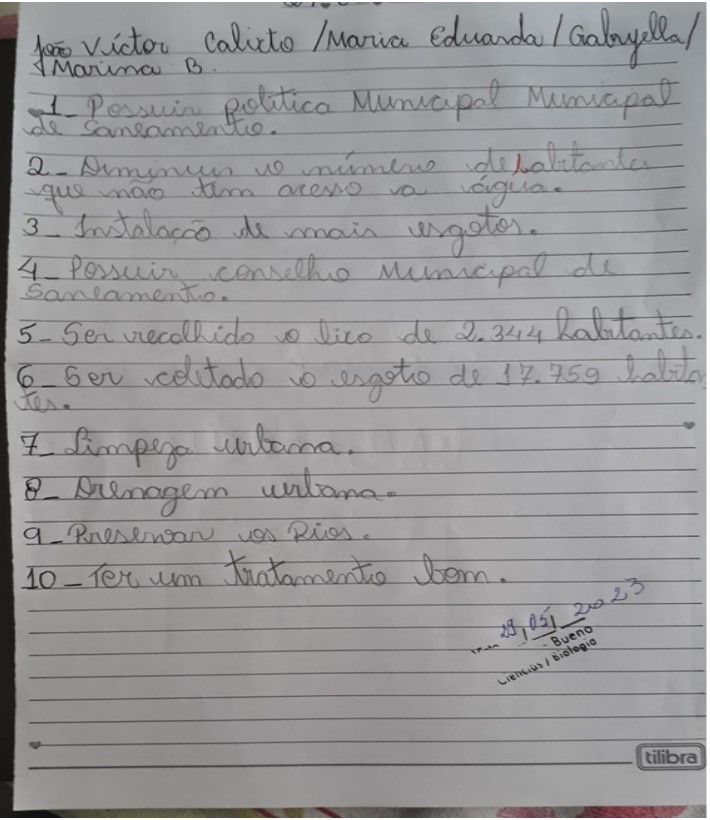 João Victor Calixto / Maria Eduarda / Gabryella /
Marina B.
1_ Possuir política Municipal Municipal
de saneamento.
2_ Diminuir o número de habitantes
que não tem acesso a água.
3_ Instalação de mais esgotos.
4_ Possuir conselho Municipal de
Saneamento.
5_ Ser recolhido o lixo de 2.344 habitantes.
6_ Ser coletado o esgoto de 17.759 habita
tes.
7_ Limpeza urbana.
8_ Drenagem urbana.
9_ Preservar os Rios.
10_ Ter um tratamento bom.
29/05/2023
Bueno
Ciências / Biologia
tilibra